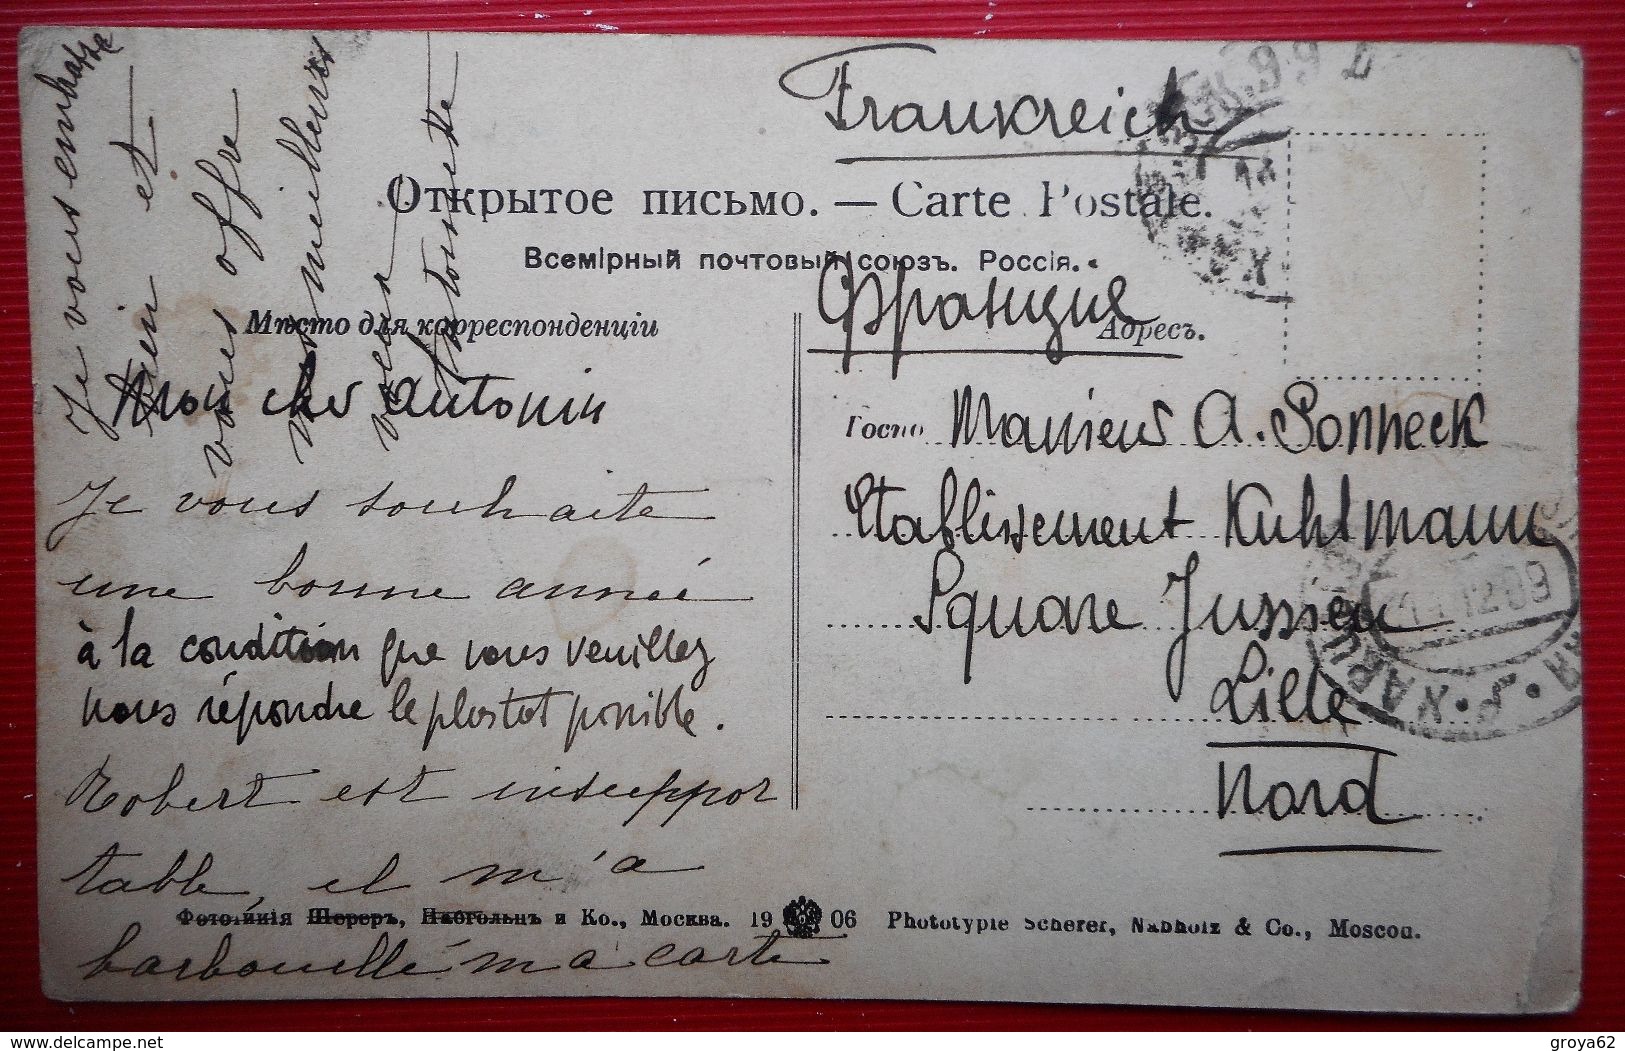 Frankreich
Открытое письмо. — Carte Postale.
Всемірный почтовый союзъ. Россія.
Франция
Мѣсто для корреспонденціи
Адресъ.
Mon cher Antonin
Je vous souhaite
une bonne année
à la condition que vous veuillez
nous répondre le plustot possible.
Robert est insuppor
table, il m'a
barbouillé ma carte
Je vous embrasse
bien et
vous offre
mes meilleurs
vœux
Antoinette
Госпо
Monsieur A. Sonneck
Etablissement Kuhlmann
Square Jussieu
Lille
Nord
12 09
NARV
Фототипія Шереръ, Набгольцъ и Ко., Москва. 19 06 Phototypie Scherer, Nabholz & Co., Moscou.
www.delcampe.net
groya62